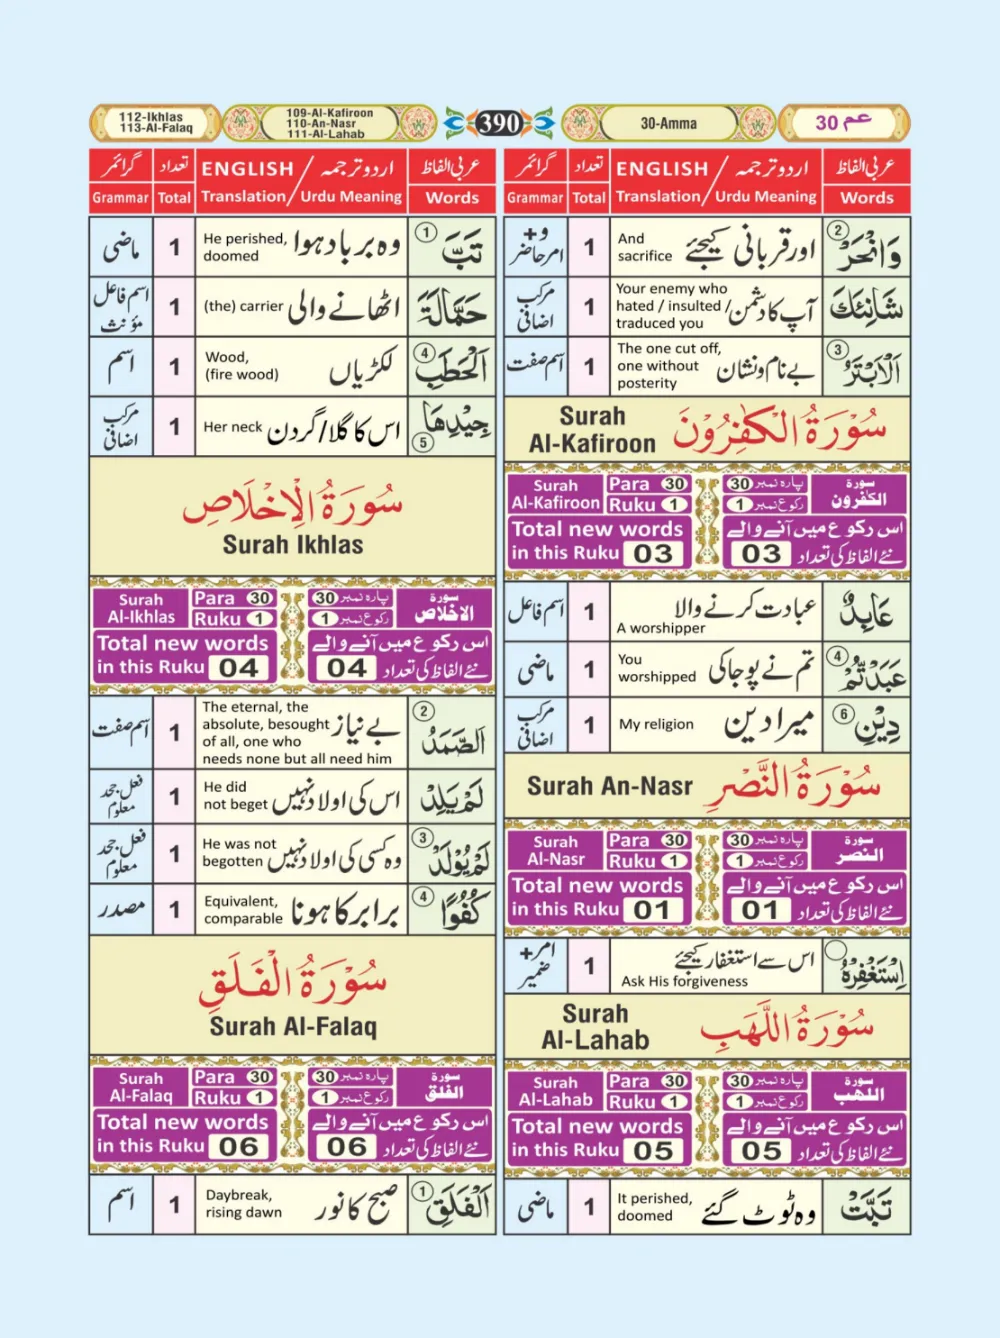 112-Ikhlas
113-Al-Falaq
109-Al-Kafiroon
110-An-Nasr
111-Al-Lahab
390
30-Amma
عم 30
گرائمر تعداد ENGLISH / اردو ترجمہ عربی الفاظ
Grammar Total Translation / Urdu Meaning Words
وَانْحَرْ ②
اور قربانی کیجئے
And
sacrifice
1
و+
امر حاضر
شَانِئَكَ
آپ کا دشمن
Your enemy who
hated / insulted /
traduced you
1
مرکب
اضافی
اَلْاَبْتَرُ ③
بے نام و نشان
The one cut off,
one without
posterity
1
اسم صفت
Surah
Al-Kafiroon
سُوْرَةُ الْكٰفِرُوْنَ
Surah
Al-Kafiroon
Para 30
Ruku 1
30 پارہ نمبر
1 رکوع نمبر
سورة
الكفرون
Total new words
in this Ruku 03
اس رکوع میں آنے والے
نئے الفاظ کی تعداد 03
عَابِدٌ
عبادت کرنے والا
A worshipper
1
اسم فاعل
عَبَدْتُّمْ ④
تم نے پوجا کی
You
worshipped
1
ماضی
دِيْنِ ⑥
میرا دین
My religion
1
مرکب
اضافی
Surah An-Nasr
سُوْرَةُ النَّصْرِ
Surah
Al-Nasr
Para 30
Ruku 1
30 پارہ نمبر
1 رکوع نمبر
سورة
النصر
Total new words
in this Ruku 01
اس رکوع میں آنے والے
نئے الفاظ کی تعداد 01
اِسْتَغْفِرْهُ
اس سے استغفار کیجئے
Ask His forgiveness
1
امر+
ضمیر
Surah
Al-Lahab
سُوْرَةُ اللَّهَبِ
Surah
Al-Lahab
Para 30
Ruku 1
30 پارہ نمبر
1 رکوع نمبر
سورة
اللهب
Total new words
in this Ruku 05
اس رکوع میں آنے والے
نئے الفاظ کی تعداد 05
تَبَّتْ
وہ ٹوٹ گئے
It perished,
doomed
1
ماضی
گرائمر تعداد ENGLISH / اردو ترجمہ عربی الفاظ
Grammar Total Translation / Urdu Meaning Words
تَبَّ ①
وہ برباد ہوا
He perished,
doomed
1
ماضی
حَمَّالَةَ
اٹھانے والی
(the) carrier
1
اسم فاعل
مؤنث
اَلْحَطَبِ ④
لکڑیاں
Wood,
(fire wood)
1
اسم
جِيْدِهَا ⑤
اس کا گلا/گردن
Her neck
1
مرکب
اضافی
سُوْرَةُ الْاِخْلَاصِ
Surah Ikhlas
Surah
Al-Ikhlas
Para 30
Ruku 1
30 پارہ نمبر
1 رکوع نمبر
سورة
الاخلاص
Total new words
in this Ruku 04
اس رکوع میں آنے والے
نئے الفاظ کی تعداد 04
اَلصَّمَدُ ②
بے نیاز
The eternal, the
absolute, besought
of all, one who
needs none but all need him
1
اسم صفت
لَمْ يَلِدْ
اس کی اولاد نہیں
He did
not beget
1
فعل جحد
معلوم
لَمْ يُوْلَدْ ③
وہ کسی کی اولاد نہیں
He was not
begotten
1
فعل جحد
معلوم
كُفُوًا ④
برابر کا ہونا
Equivalent,
comparable
1
مصدر
سُوْرَةُ الْفَلَقِ
Surah Al-Falaq
Surah
Al-Falaq
Para 30
Ruku 1
30 پارہ نمبر
1 رکوع نمبر
سورة
الفلق
Total new words
in this Ruku 06
اس رکوع میں آنے والے
نئے الفاظ کی تعداد 06
اَلْفَلَقِ ①
صبح کا نور
Daybreak,
rising dawn
1
اسم